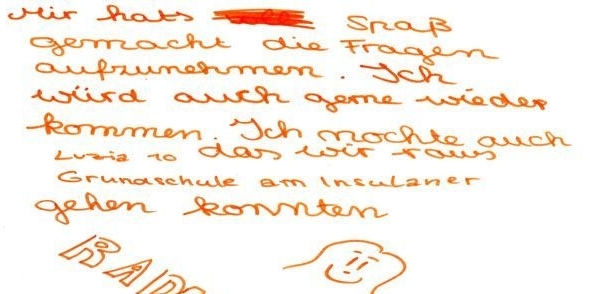 Mir hats Spaß
gemacht die Fragen
aufzunehmen. Ich
würd auch gerne wieder
kommen. Ich mochte auch
Luzia 10 das wir raus
Grundschule am Insulaner
gehen konnten